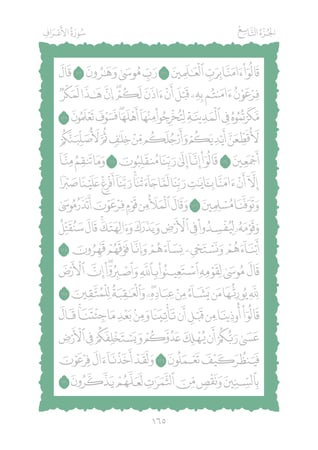 سُورَةُ الأَعْرَافِ
الجُزْءُ التَّاسِعُ
قَالُوٓا۟ ءَامَنَّا بِرَبِّ ٱلْعَٰلَمِينَ رَبِّ مُوسَىٰ وَهَٰرُونَ قَالَ
فِرْعَوْنُ ءَامَنتُم بِهِۦ قَبْلَ أَنْ ءَاذَنَ لَكُمْ إِنَّ هَٰذَا لَمَكْرٌ
مَّكَرْتُمُوهُ فِى ٱلْمَدِينَةِ لِتُخْرِجُوا۟ مِنْهَآ أَهْلَهَا فَسَوْفَ تَعْلَمُونَ
لَأُقَطِّعَنَّ أَيْدِيَكُمْ وَأَرْجُلَكُم مِّنْ خِلَٰفٍ ثُمَّ لَأُصَلِّبَنَّكُمْ
أَجْمَعِينَ قَالُوٓا۟ إِنَّآ إِلَىٰ رَبِّنَا مُنقَلِبُونَ وَمَا تَنقِمُ مِنَّآ
إِلَّآ أَنْ ءَامَنَّا بِـَٔايَٰتِ رَبِّنَا لَمَّا جَآءَتْنَا رَبَّنَآ أَفْرِغْ عَلَيْنَا صَبْرًا
وَتَوَفَّنَا مُسْلِمِينَ وَقَالَ ٱلْمَلَأُ مِن قَوْمِ فِرْعَوْنَ أَتَذَرُ مُوسَىٰ
وَقَوْمَهُۥ لِيُفْسِدُوا۟ فِى ٱلْأَرْضِ وَيَذَرَكَ وَءَالِهَتَكَ قَالَ سَنُقَتِّلُ
أَبْنَآءَهُمْ وَنَسْتَحْىِۦ نِسَآءَهُمْ وَإِنَّا فَوْقَهُمْ قَٰهِرُونَ
قَالَ مُوسَىٰ لِقَوْمِهِ ٱسْتَعِينُوا۟ بِٱللَّهِ وَٱصْبِرُوٓا۟ إِنَّ ٱلْأَرْضَ
لِلَّهِ يُورِثُهَا مَن يَشَآءُ مِنْ عِبَادِهِۦ وَٱلْعَٰقِبَةُ لِلْمُتَّقِينَ
قَالُوٓا۟ أُوذِينَا مِن قَبْلِ أَن تَأْتِيَنَا وَمِنۢ بَعْدِ مَا جِئْتَنَا قَالَ
عَسَىٰ رَبُّكُمْ أَن يُهْلِكَ عَدُوَّكُمْ وَيَسْتَخْلِفَكُمْ فِى ٱلْأَرْضِ
فَيَنظُرَ كَيْفَ تَعْمَلُونَ وَلَقَدْ أَخَذْنَآ ءَالَ فِرْعَوْنَ
بِٱلسِّنِينَ وَنَقْصٍ مِّنَ ٱلثَّمَرَٰتِ لَعَلَّهُمْ يَذَّكَّرُونَ
١٦٥